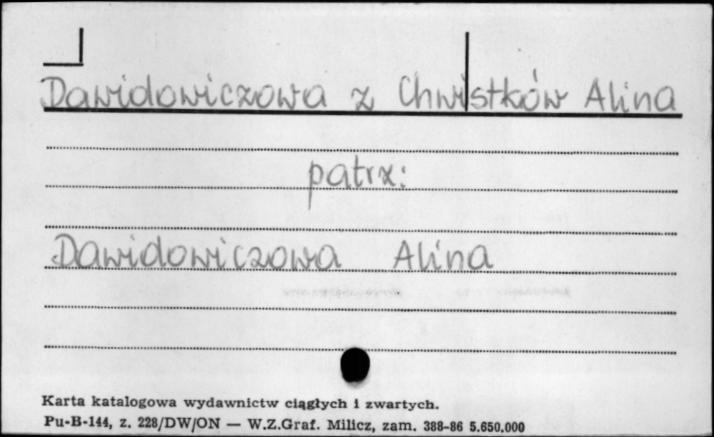 Dawidowiczowa z Chwistków Alina
patrz:
Dawidowiczowa Alina
Karta katalogowa wydawnictw ciągłych i zwartych.
Pu-B-144, z. 228/DW/ON — W.Z.Graf. Milicz, zam. 388-86 5.650.000